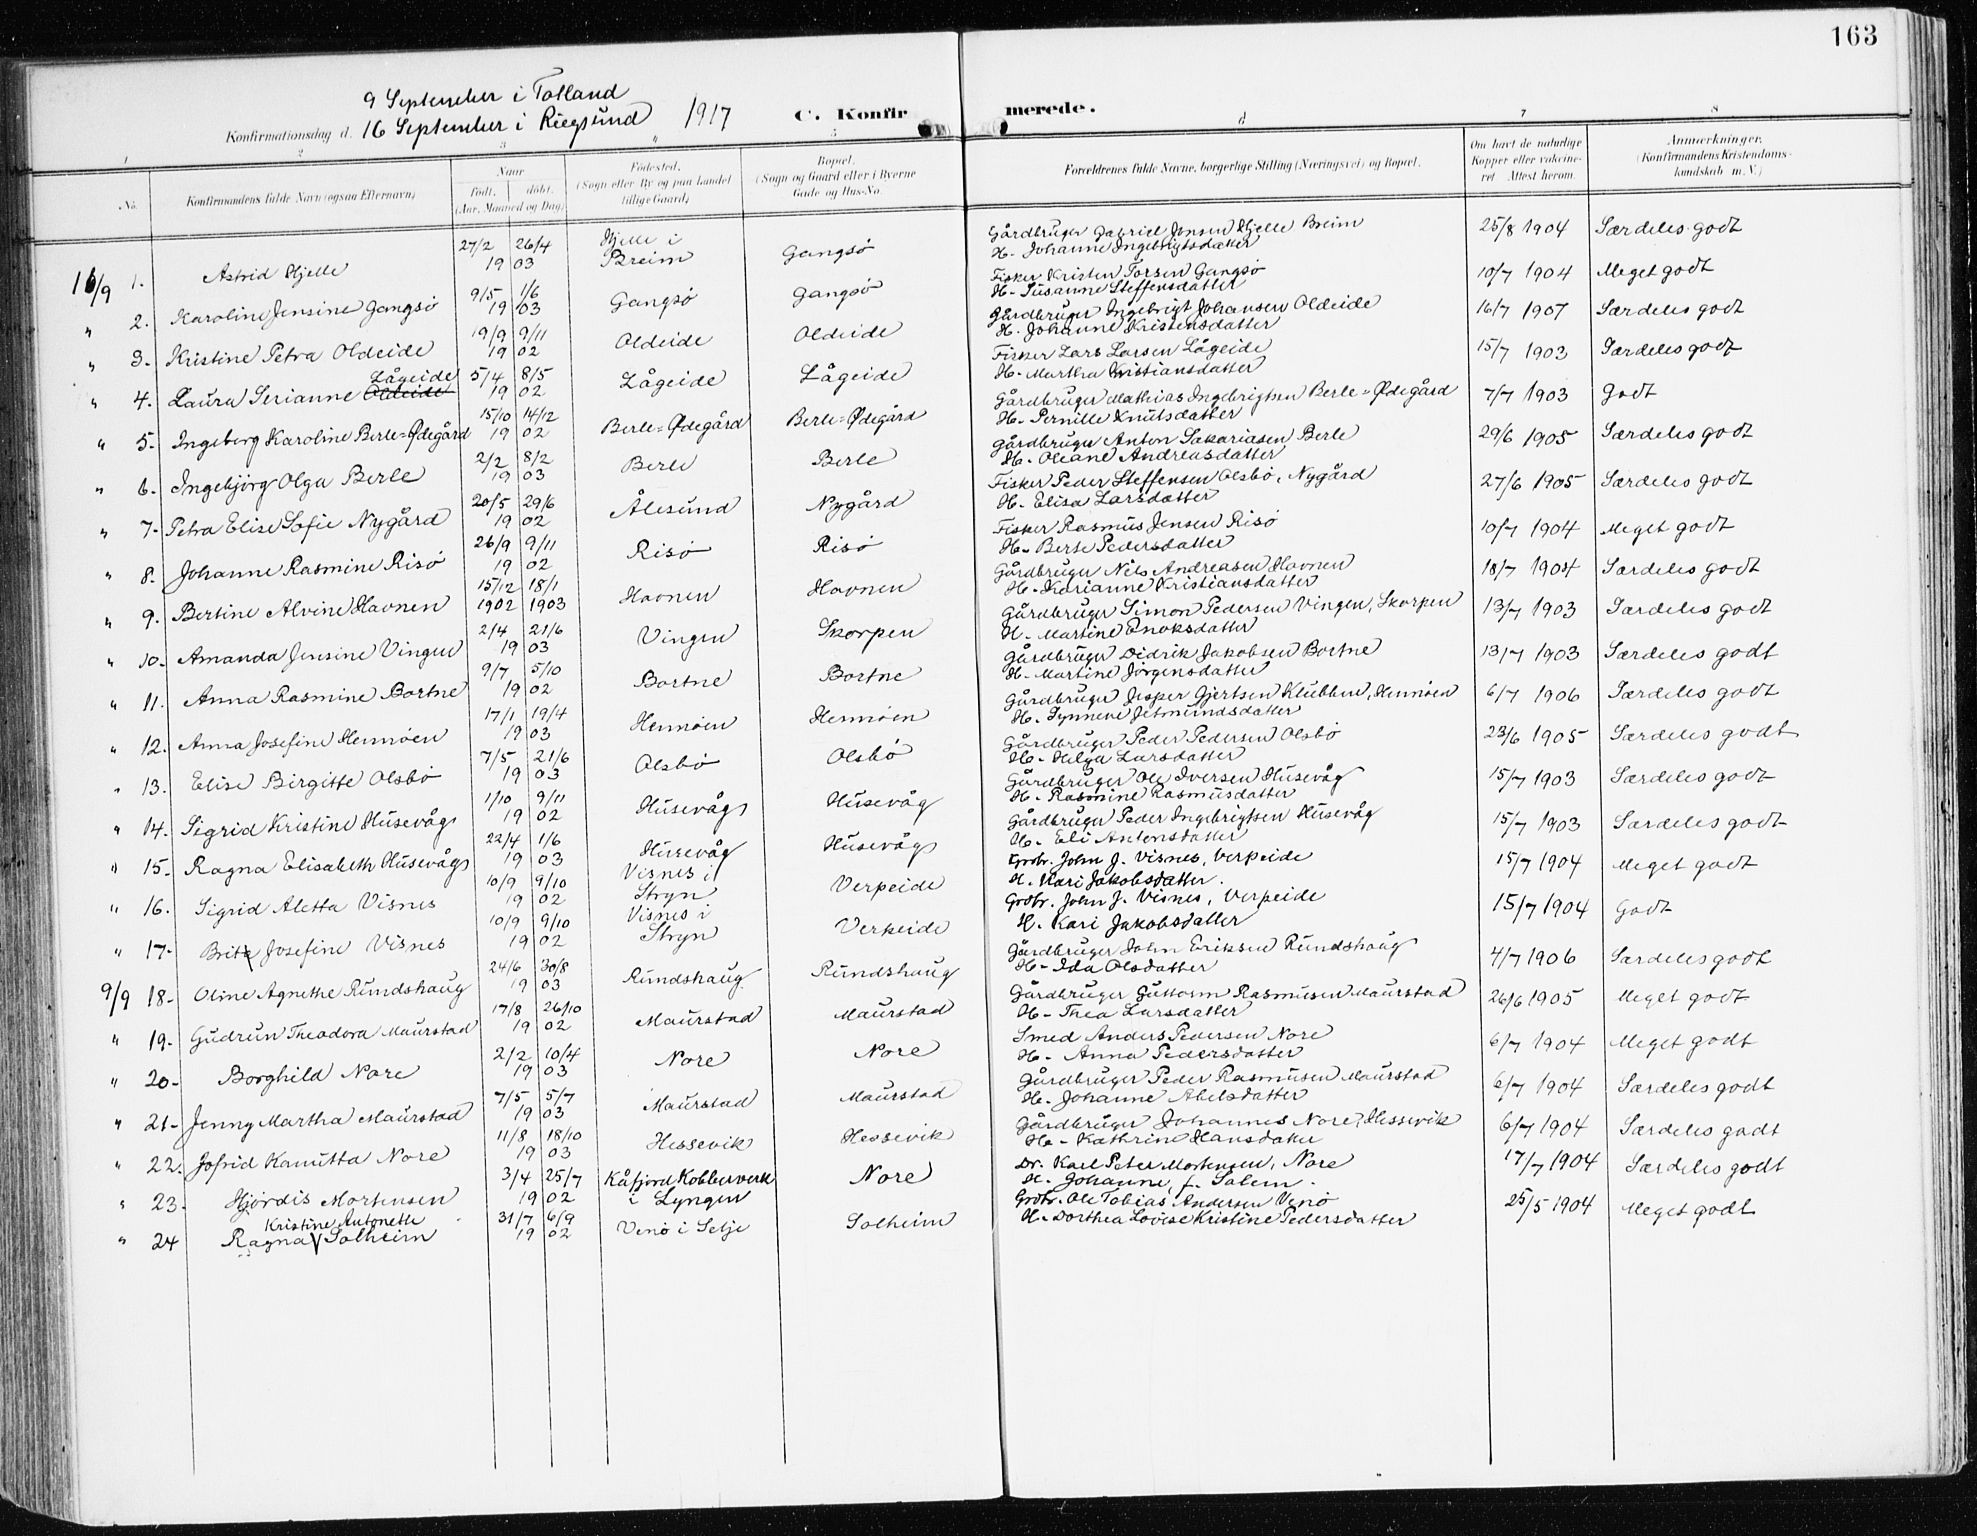 163
9 September i Totland
Konfirmationsdag d. 16 September i Rugsund 1917 C. Konfirmerede.
1 2 3 5 6 7 8
No. Konfirmandens fulde Navn (ogsaa Efternavn) Naar Født, døbt. (Aar, Maaned og Dag) Fødested. (Sogn eller By og paa Landet tillige Gaard) Bopæl. (Sogn og Gaard eller i Byerne Gade og Hus-No. Forældrenes fulde Navne, borgerlige Stilling (Næringsvei) og Bopæl. Om havt de naturlige Kopper eller vaccineret. Attest herom. Anmærkninger. (Konfirmandens Kristendomskundskab m. V.)
16/9 1. Astrid Hjelle 27/2 26/4 1903 Hjelle i Breim Gangsö Gårdbruger Gabriel Jensen Hjelle Breim H. Johanne Ingebrigtsdatter 25/8 1904 Særdeles godt
" 2. Karoline Jensine Gangsö 9/5 1/6 1903 Gangsö Gangsö Fisker Kristen Torsen Gangsö H. Susanne Steffensdatter 10/7 1904 Meget godt
" 3. Kristine Petra Oldeide 19/9 9/11 1902 Oldeide Oldeide Gårdbruger Ingebrigt Johansen Oldeide H. Johanne Kristensdatter 16/7 1907 Særdeles godt
" 4. Laura Serianne Oldeide Lågeide 5/4 8/5 1902 Lågeide Lågeide Fisker Lars Larsen Lågeide H. Martha Kristiansdatter 15/7 1903 Særdeles godt
" 5. Ingeborg Karoline Berle=Ødegård 15/10 14/12 1902 Berle=Ødegård Berle=Ødegård Gårdbruger Mathias Ingebrigtsen Berle=Ødegård H. Pernille Knutsdatter 7/7 1903 Godt
" 6. Ingebjörg Olga Berle 2/2 8/2 1903 Berle Berle Gårdbruger Anton Sakariasen Berle H. Oleane Andreasdatter 29/6 1905 Særdeles godt
" 7. Petra Elise Sofie Nygård 20/5 29/6 1902 Ålesund Nygård Fisker Peder Steffensen Olsbö, Nygård H. Elisa Larsdatter 27/6 1905 Særdeles godt
" 8. Johanne Rasmine Risö 26/9 9/11 1902 Risö Risö Fisker Rasmus Jensen Risö H. Berte Pedersdatter 10/7 1904 Meget godt
" 9. Bertine Alvine Havnen 15/12 18/1 1902 1903 Havnen Havnen Gårdbruger Nils Andreasen Havnen H. Karianne Kristiansdatter 18/7 1904 Særdeles godt
" 10. Amanda Jensine Vingen 2/4 21/6 1903 Vingen Skorpen Gårdbruger Simon Pedersen Vingen, Skorpen H. Martine Enoksdatter 13/7 1903 Særdeles godt
" 11. Anna Rasmine Bortne 9/7 5/10 1902 Bortne Bortne Gårdbruger Didrik Jakobsen Bortne H. Martine Jörgensdatter 13/7 1903 Særdeles godt
" 12. Anna Josefine Hennöen 17/1 19/4 1903 Hennöen Hennöen Gårdbruger Jesper Gjertsen Klubben, Hennöen H. Synneve Jetmundsdatter 6/7 1906 Særdeles godt
" 13. Elise Birgitte Olsbö 7/5 21/6 1903 Olsbö Olsbö Gårdbruger Peder Pedersen Olsbö H. Helga Larsdatter 23/6 1905 Særdeles godt
" 14. Sigrid Kristine Husevåg 1/10 9/11 1902 Husevåg Husevåg Gårdbruger Ole Iversen Husevåg H. Rasmine Rasmusdatter 15/7 1903 Særdeles godt
" 15. Ragna Elisabeth Husevåg 22/4 1/6 1903 Husevåg Husevåg Gårdbruger Peder Ingebrigtsen Husevåg H. Eli Antonsdatter 15/7 1903 Særdeles godt
" 16. Sigrid Aletta Visnes 10/9 9/10 1902 Visnes i Stryn Verpeide Grdbr. John J. Visnes, Verpeide H. Kari Jakobsdatter. 15/7 1904 Meget godt
" 17. Brita Josefine Visnes 10/9 9/10 1902 Visnes i Stryn Verpeide Grdbr. John J. Visnes, Verpeide H. Kari Jakobsdatter 15/7 1904 Godt
9/9 18. Oline Agnethe Rundshaug 24/6 30/8 1903 Rundshaug Rundshaug Gårdbruger John Eriksen Rundshaug H. Ida Olsdatter 4/7 1906 Særdeles godt
" 19. Gudrun Theodora Maurstad 17/8 26/10 1902 Maurstad Maurstad Gårdbruger Guttorm Rasmusen Maurstad H. Thea Larsdatter 26/6 1905 Meget godt
" 20. Borghild Nore 2/2 10/4 1903 Nore Nore Smed Anders Pedersen Nore H. Anna Pedersdatter 6/7 1904 Meget godt
" 21. Jenny Martha Maurstad 7/5 5/7 1903 Maurstad Maurstad Gårdbruger Peder Rasmusen Maurstad H. Johanne Abelsdatter 6/7 1904 Særdeles godt
" 22. Jofrid Kanutta Nore 11/8 18/10 1903 Hessevik Hessevik Gårdbruger Johannes Nore, Hessevik H. Kathrine Hansdatter 6/7 1904 Særdeles godt
" 23. Hjördis Mortensen 3/4 25/7 1902 Kåfjord Kobberverk i Lyngen Nore Dr. Karl Peter Mortensen, Nore H. Johanne, f. Salem. 17/7 1904 Særdeles godt
" 24 Ragna Kristine Antonette Solheim 31/7 6/9 1902 Venö i Selje Solheim Grdbr. Ole Tobias Andersen Venö H. Dorthea Lovise Kristine Pedersdatter 25/5 1904 Meget godt